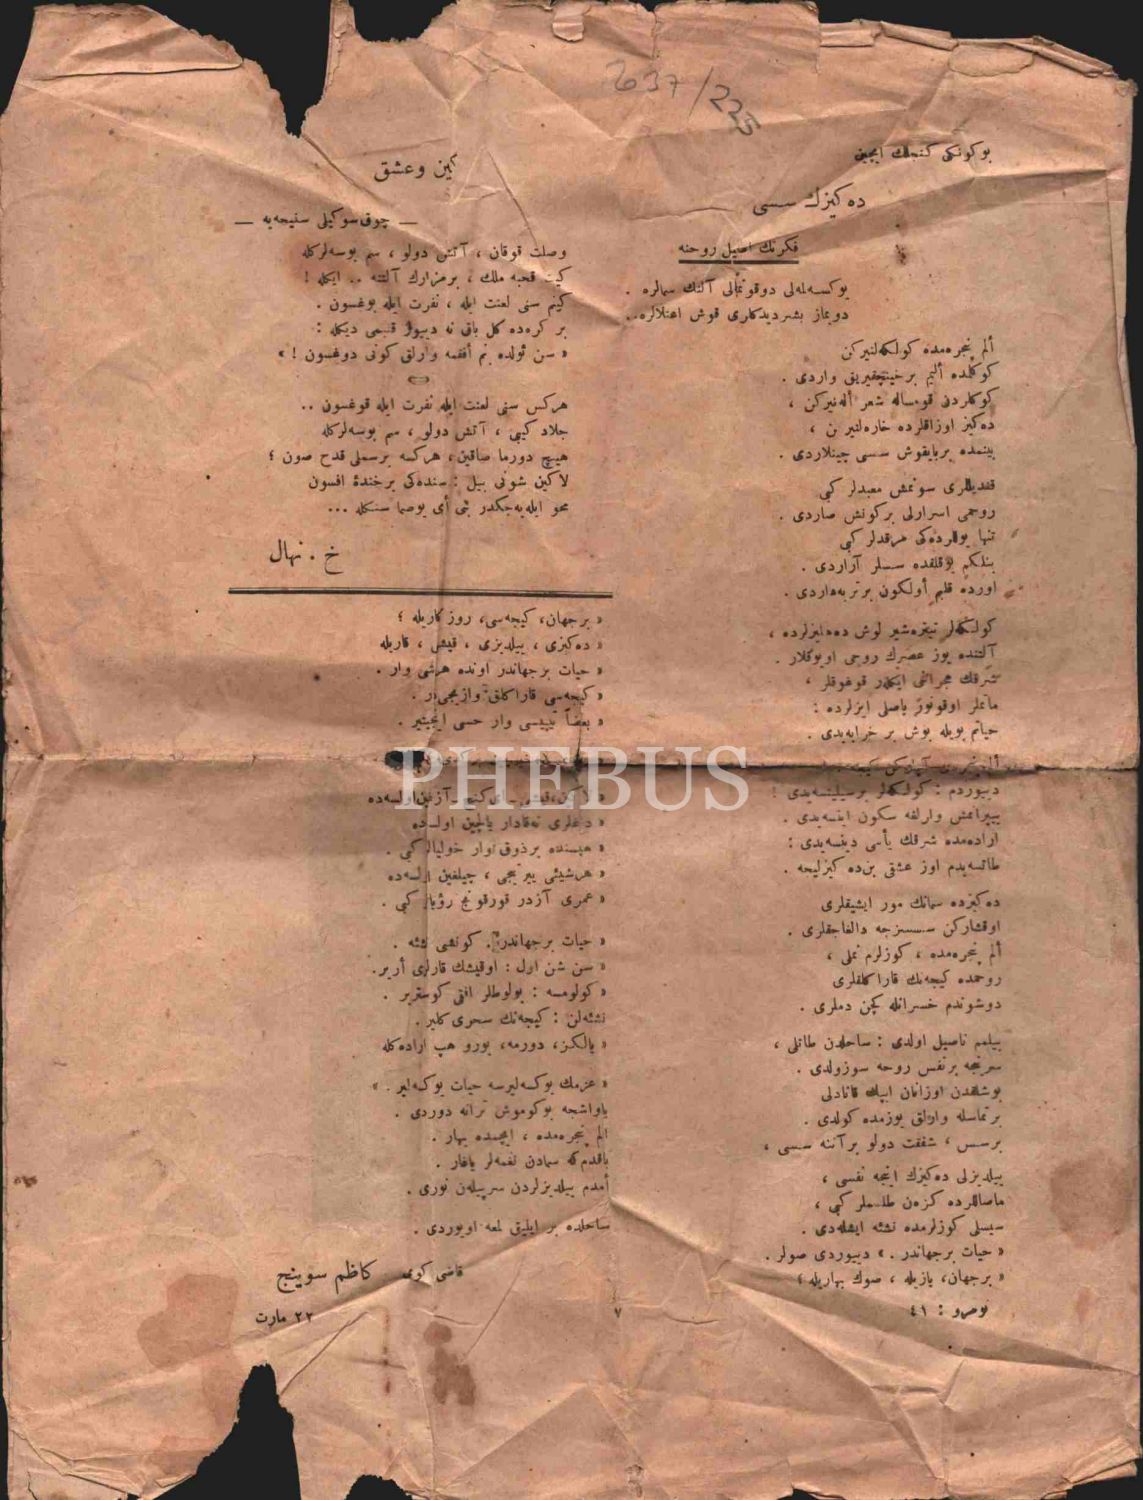 637/225
بوكونكی كنجلك ایچین
ده كیزك سسی
فكرتك اصیل روحنه
بوكسه لمه لی دوقونمالی آلنك سمالره .
دویماز بشر دیدكلری قوش اعتلالره..
ألم پنجره مده كولكه لنیركن
كوكلمده ألیم بر خینچقیریق واردی .
كوكلردن قومساله شعر أله نیركن ،
ده كیز اوزاقلرده خاره لنیركن ،
بینمده بر بایقوش سسی چینلاردی .
قندیللری سونمش معبدلر كبی
روحمی اسرارلی بر كونش صاردی .
تنها یوللرده كی مرقدلر كبی
بنلكم یوقلقده سسلر آراردی .
اورده قلبم أولكون بر تربه داردی .
كولكه لر تیتره شیر لوش ده هلیزلرده ،
آلتنده یوز عصرك روحی اویوقلار .
شرقك هجرانی ایكلدر قوغوقلر ،
ماتملر اوقونور یاصلی ایزلرده :
حیاتم بویله بوش بر خرابه یدی .
دییوردم : كولكه لر بر سیلینسه یدی !
ییپرانمش وارلغه سكون اینسه یدی .
اراده مده شرقك یأسی دینسه یدی :
طاتسه یدم اوز عشقی بن ده كیزلیجه .
ده كیزده سمانك مور ایشیقلری
اوقشاركن سسسزجه دالغاجقلری .
ألم پنجره مده ، كوزلرم نملی ،
روحمده كیجه نك قاراكلقلری
دوشوندم خسرانله كچن دملری .
بیلمم ناصیل اولدی : ساحلدن طاتلی ،
سرنجه بر نفس روحه سوزولدی .
بوشلقدن اوزانان ایپك قانادلی
بر تماسله وارلق یوزمده كولدی .
بر سس ، شفقت دولو بر آننه سسی ،
ییلدیزلی ده كیزك اینجه نفسی ،
ماصاللرده كزه ن طلسملر كبی ،
سیسلی كوزلرمده نشئه ایشله دی .
« حیات بر جهاندر . » دییوردی صولر .
« بر جهان، یازیله ، صوك بهاریله ؛
نومرو : ٤١
كین و عشق
— چوق سوكیلی سنیحه یه —
وصلت قوقان ، آتش دولو ، سم بوسه لركله
كیت قحبه ملك ، بر مزارك آلتنه .. ایكله !
كینم سنی لعنت ایله ، نفرت ایله بوغسون .
بر كره ده كل باق نه دییور قلبمی دیكله :
« سن ئولده بنم أفقمه وارلق كونی دوغسون ! »
هركس سنی لعنت ایله نفرت ایله قوغسون ..
جلاد كیبی ، آتش دولو ، سم بوسه لركله
هیچ دورما صاقین، هركسه بر سملی قدح صون ؛
لاكین شونی بیل : سنده كی بر خندهٔ افسون
محو ایله یه جكدر بنی أی یوصما سنكله ...
خ . نهال
« بر جهان، كیجه سی، روزكاریله ؛
« ده كیزی ، ییلدیزی ، قیشی ، قاریله
« حیات بر جهاندر اونده هر شی وار .
« كیجه سی قاراكلق وازیجی در .
« بعضاً تیپیسی وار حسی اینجیتیر .
« داغلری نه قادار یالچین اولسه ده
« هپسنده بر ذوق وار خولیالر كبی .
« هر شیئی ییرتیجی ، چیلغین اولسه ده
« عمری آزدر قورقونج رؤیالر كبی .
« حیات بر جهاندر. كونشی نشئه .
« سن شن اول : اوقیشك قارلری أریر.
« كولومسه : بولوطلر افقی كوستریر .
نشئه لن : كیجه نك سحری كلیر .
« یالكز، دورمه، یورو هپ اراده كله
« عزمك یوكسه لیرسه حیات یوكسه لیر . »
یاواشجه بوكوموش ترانه دوردی .
الم پنجره مده ، ایچمده بهار .
باقدم كه سمادن نغمه لر یاغار .
أمدم ییلدیزلردن سرپیله ن نوری .
ساحلده بر ایلیق لمعه اویوردی .
قاضی كوی كاظم سوینج
٢٢ مارت
٧
PHEBUS